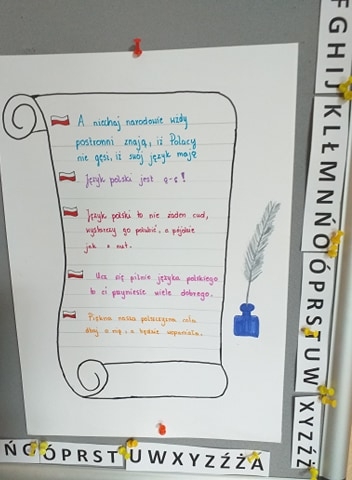 A niechaj narodowie wżdy
postronni znają, iż Polacy
nie gęsi, iż swój język mają
Język polski jest ą-ę!
Język polski to nie żaden cud,
wystarzy go polubić, a pójdzie
jak z nut.
Ucz się pilnie języka polskiego
to ci przyniesie wiele dobrego.
Piękna nasza polszczyzna cała
dbaj o nią, a będzie wspaniała.
F G H I J K L Ł M N Ń O Ó P R S T U W X Y Z Ź Ż
Ń O Ó P R S T U W X Y Z Ź Ż A